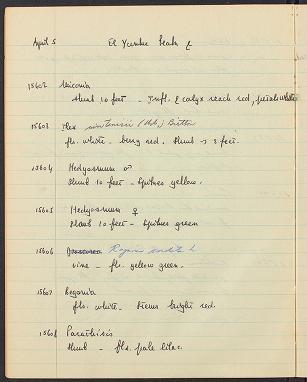 April 5 El Yunke Peak
15602 Miconia
shrub 10 feet - Infl. & calyx peach red, petals white
15603 Ilex sintenisii (Urb.) Britton
fls. white - berry red. Shrub 3 feet.
15604 Hedyosmum ♂
Shrub 10 feet - Spikes yellow.
15605 Hedyosmum ♀
Shrub 10 feet - Spikes green
15606 Dioscorea Rajania
vine - fls. yellow green.
15607 Begonia
fls. white - Stems bright red
15608 Parathesis
Shrub - fls. pale lilac.